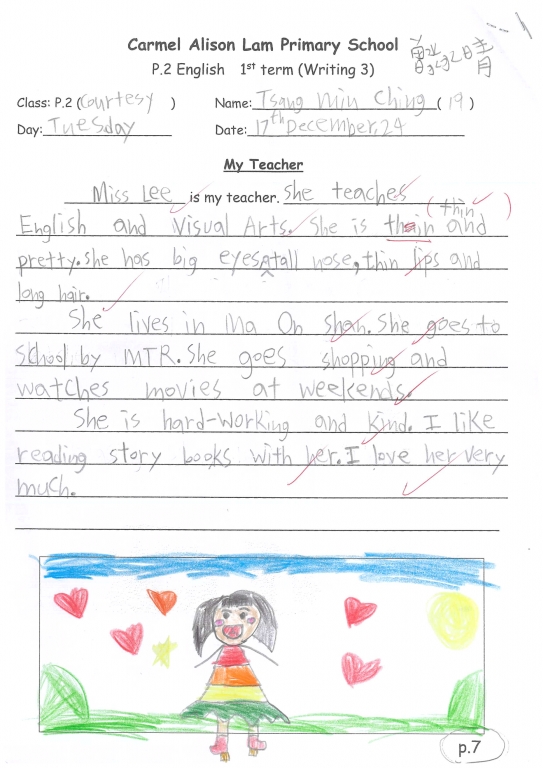 Carmel Alison Lam Primary School
P.2 English 1st term (Writing 3)
Class: P.2 (Courtesy ) Name: Tsang Min Ching (19)
Day: Tuesday Date: 17th December,24
My Teacher
Miss Lee is my teacher. She teaches
(thin)
English and Visual Arts. She is thain and
pretty. she has big eyes, A tall nose, thin lips and
long hair.
She lives in Ma On Shan. She goes to
School by MTR. She goes shopping and
watches movies at weekends.
She is hard-working and kind. I like
reading story books with her. I love her very
much.
p.7